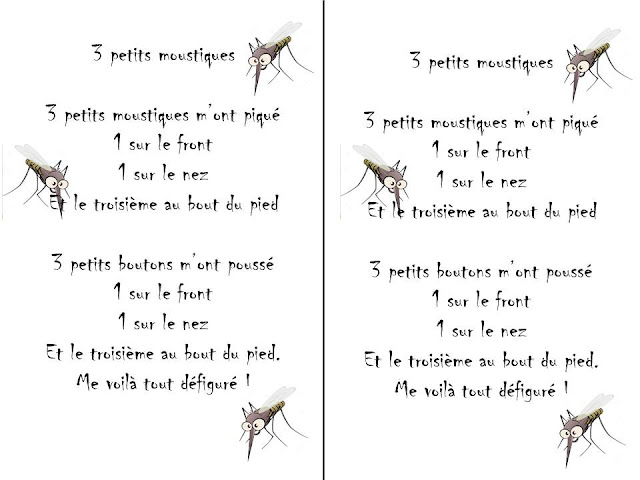 3 petits moustiques
3 petits moustiques m'ont piqué
1 sur le front
1 sur le nez
Et le troisième au bout du pied
3 petits boutons m'ont poussé
1 sur le front
1 sur le nez
Et le troisième au bout du pied.
Me voilà tout défiguré !
3 petits moustiques
3 petits moustiques m'ont piqué
1 sur le front
1 sur le nez
Et le troisième au bout du pied
3 petits boutons m'ont poussé
1 sur le front
1 sur le nez
Et le troisième au bout du pied.
Me voilà tout défiguré !